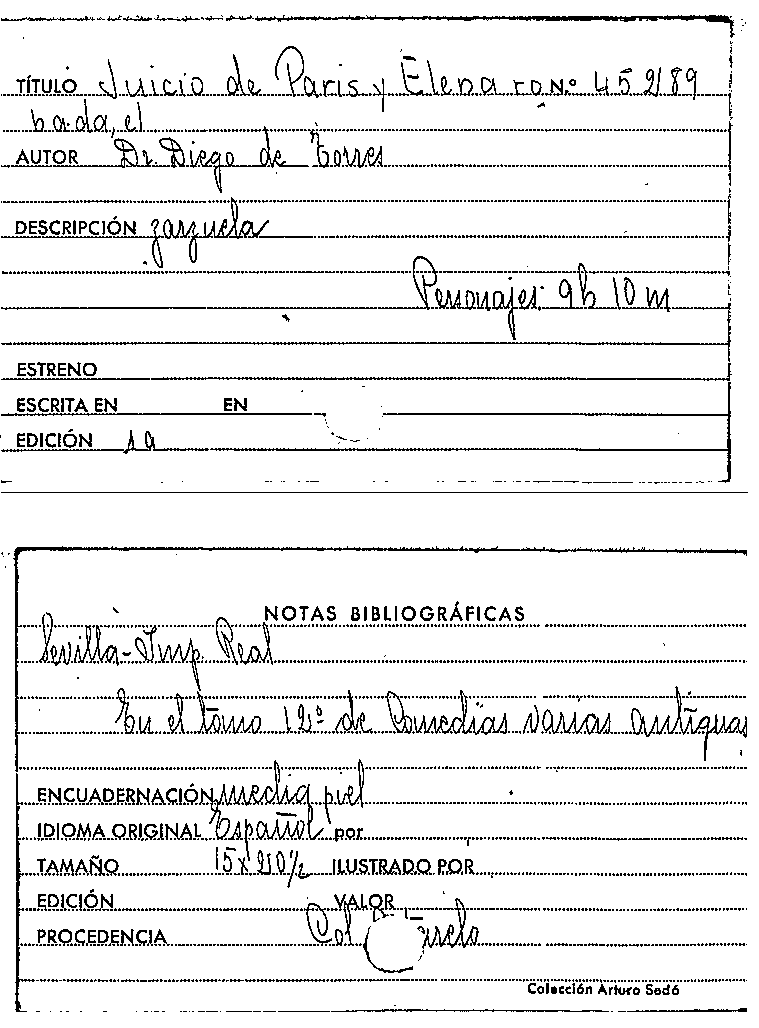 TÍTULO Juicio de Paris y Elena ro N.º 45289
bada, el
AUTOR Dr. Diego de Torres
DESCRIPCIÓN zarzuela
Personajes: 9h 10 m
ESTRENO
ESCRITA EN EN
EDICIÓN 1a
NOTAS BIBLIOGRÁFICAS
Sevilla - Imp. Real
En el tomo 12º de Comedias varias antiguas
ENCUADERNACIÓN media piel
IDIOMA ORIGINAL Español por
TAMAÑO 15 x 20½ ILUSTRADO POR
EDICIÓN VALOR
PROCEDENCIA Col
Colección Arturo Sedó